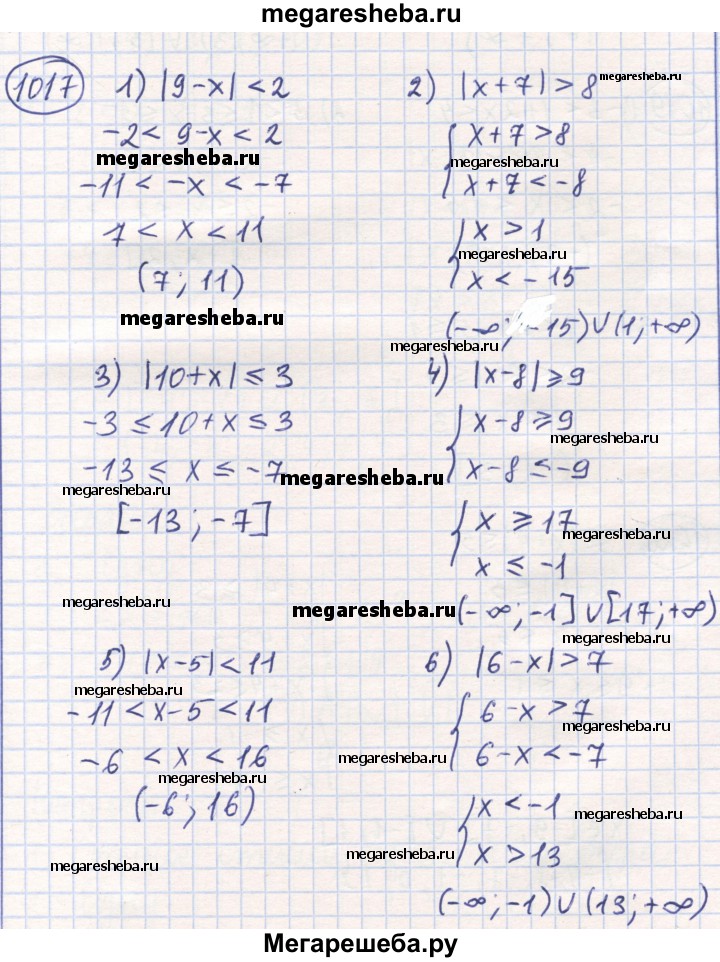 megaresheba.ru
1017 1) |9-x| < 2
-2 < 9-x < 2
megaresheba.ru
-11 < -x < -7
7 < x < 11
(7; 11)
megaresheba.ru
2) |x+7| > 8 megaresheba.ru
{ x+7 > 8
megaresheba.ru
x+7 < -8
{ x > 1
megaresheba.ru
x < -15
(-∞; -15) ∪ (1; +∞)
megaresheba.ru
3) |10+x| ≤ 3
-3 ≤ 10+x ≤ 3
-13 ≤ x ≤ -7
megaresheba.ru
megaresheba.ru
[-13; -7]
megaresheba.ru
4) |x-8| ≥ 9
{ x-8 ≥ 9
megaresheba.ru
x-8 ≤ -9
{ x ≥ 17
megaresheba.ru
x ≤ -1
megaresheba.ru
(-∞; -1] ∪ [17; +∞)
megaresheba.ru
5) |x-5| < 11
megaresheba.ru
-11 < x-5 < 11
-6 < x < 16
megaresheba.ru
(-6; 16)
megaresheba.ru
6) |6-x| > 7
{ 6-x > 7
megaresheba.ru
6-x < -7
megaresheba.ru
{ x < -1
megaresheba.ru
x > 13
megaresheba.ru
(-∞; -1) ∪ (13; +∞)
Мегарешеба.ру